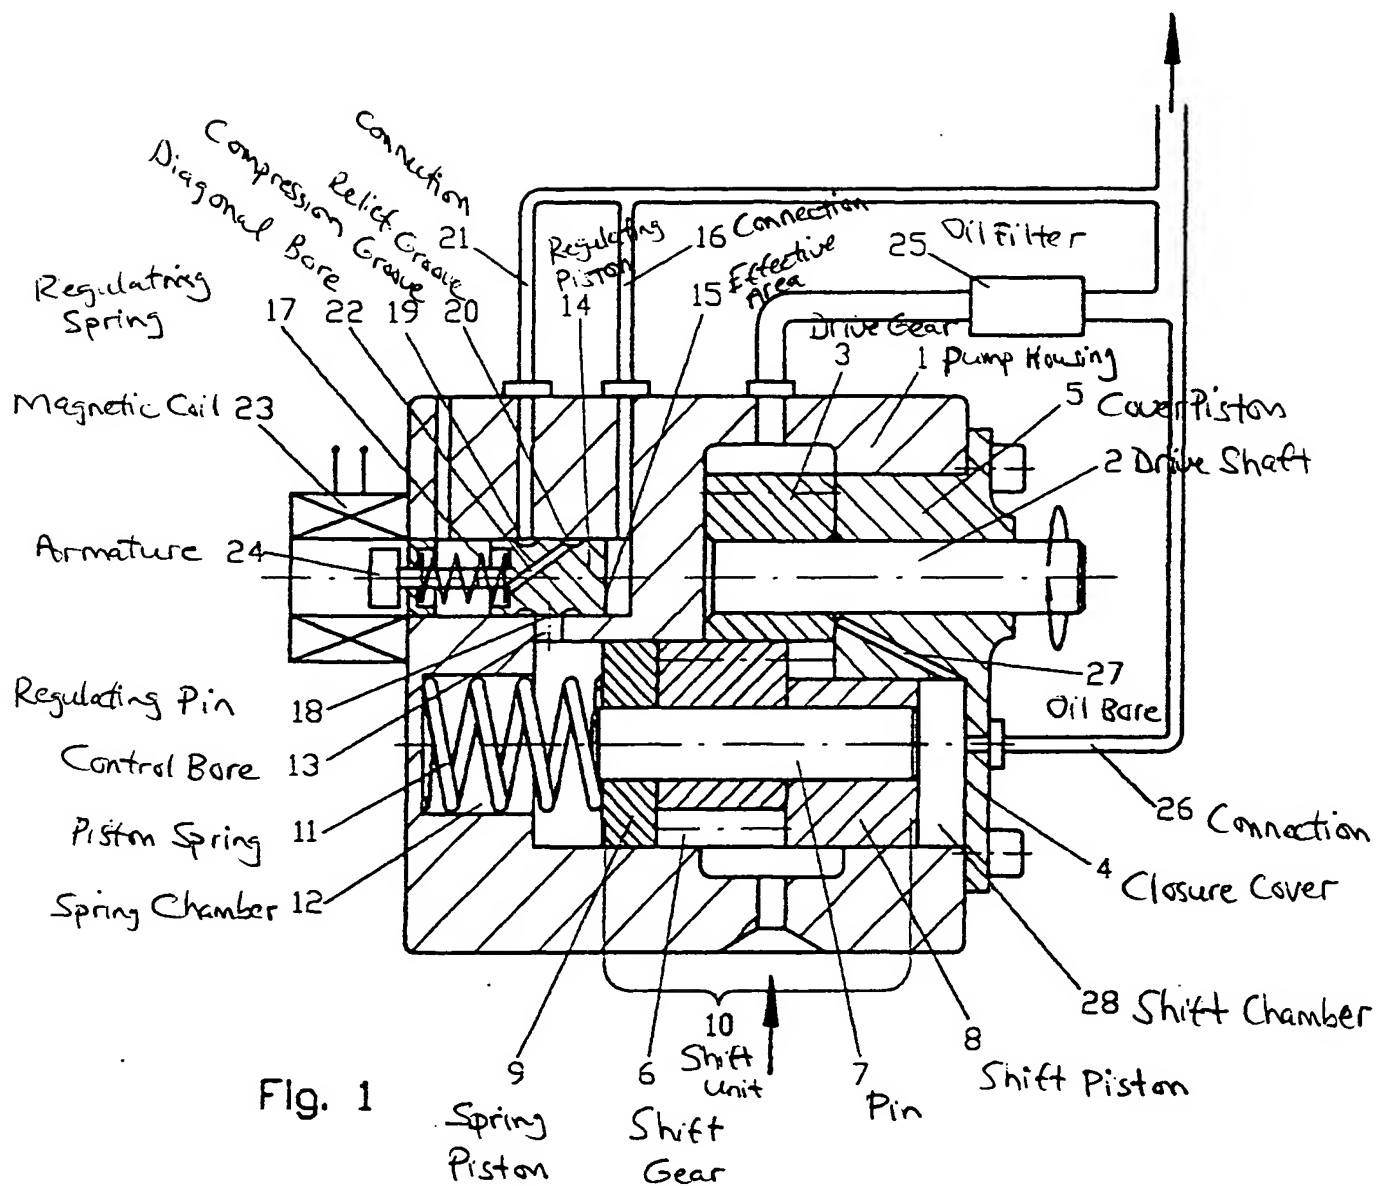 Connection
21
Relief Groove
20
Compression Groove
19
Diagonal Bore
22
Regulating
Spring
17
Regulating
Piston
14
16 Connection
15 Effective
Area
Oil Filter
25
Drive Gear
3
1 Pump Housing
5 Cover Piston
2 Drive Shaft
Magnetic Coil 23
Armature 24
27
Oil Bore
Regulating Pin 18
Control Bore 13
Piston Spring 11
Spring Chamber 12
26 Connection
4 Closure Cover
28 Shift Chamber
10
Shift
Unit
9
Spring
Piston
6
Shift
Gear
7
Pin
8
Shift Piston
Fig. 1